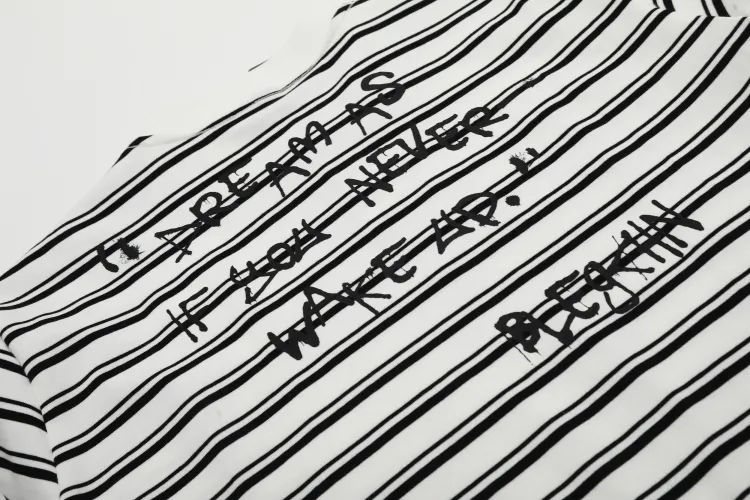 "DREAM AS
IF YOU NEVER
WAKE UP."